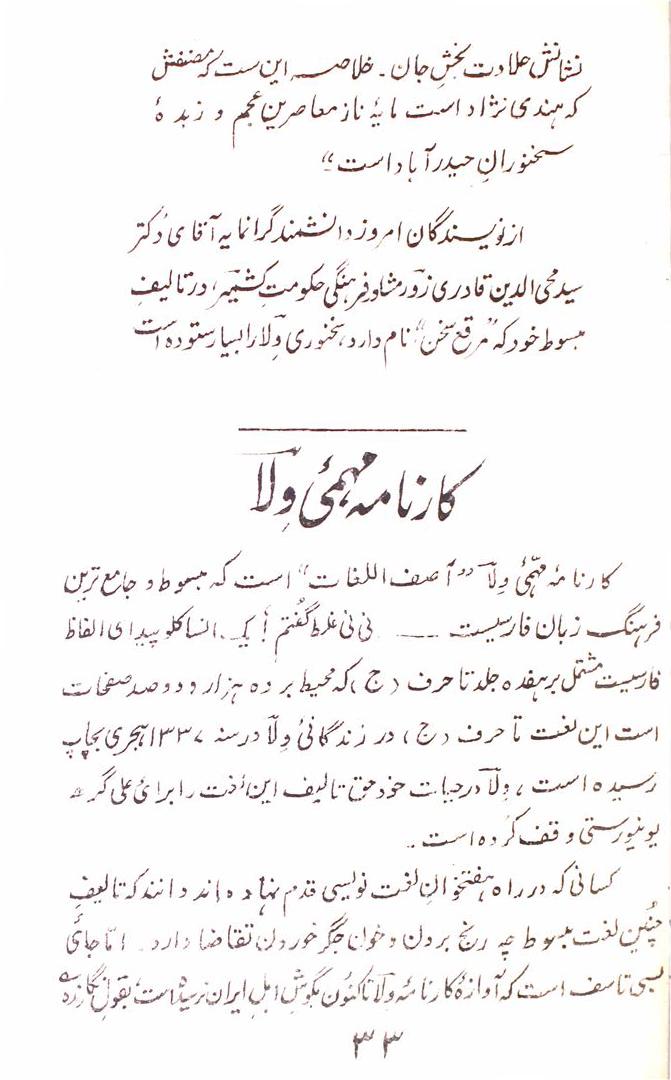 نشانش حلاوت بخشِ جان ـ خلاصه این ست که مصنفش
که هندی نژاد است مایهٔ ناز معاصرینِ عجم و زبدهٔ
سخنورانِ حیدرآباد است"
از نویسندگان امروز دانشمند گرانمایه آقای دکتر
سید محی الدین قادری زور مشاور فرهنگی حکومتِ کشمیر، در تالیفِ
مبسوط خود که "مرقع سخن" نام دارد، سخنوری ولا را بسیار ستوده است
کارنامه مهمیٔ وِلا
کارنامهٔ مهمّیٔ وِلا "آصف اللغات" است که مبسوط و جامع ترین
فرهنگ زبان فارسیست ــــ نی نی غلط گفتم! یک انسائکلو پیڈیای الفاظ
فارسیست مشتمل بر هفده جلد تا حرف (ج) که محیط بر ده هزار و دو صد صفحات
است این لغت تا حرف (ج) در زندگانیٔ وِلا در سنه ۱۳۳۷ هجری بچاپ
رسیده است، وِلا در حیات خود حق تالیف این لغت را برای علی گره
یونیورستی وقف کرده است ـ
کسانی که در راه هفتخوانِ لغت نویسی قدم نهاده اند دانند که تالیفِ
چنین لغت مبسوط چه رنج بردن و خون جگر خوردن تقاضا دارد ـ امّا جائ
بسی تاسف است که آوازهٔ کارنامهٔ وِلا تا کنون بگوشِ اهلِ ایران نرسیده است بقولِ نگارنده
۳۳